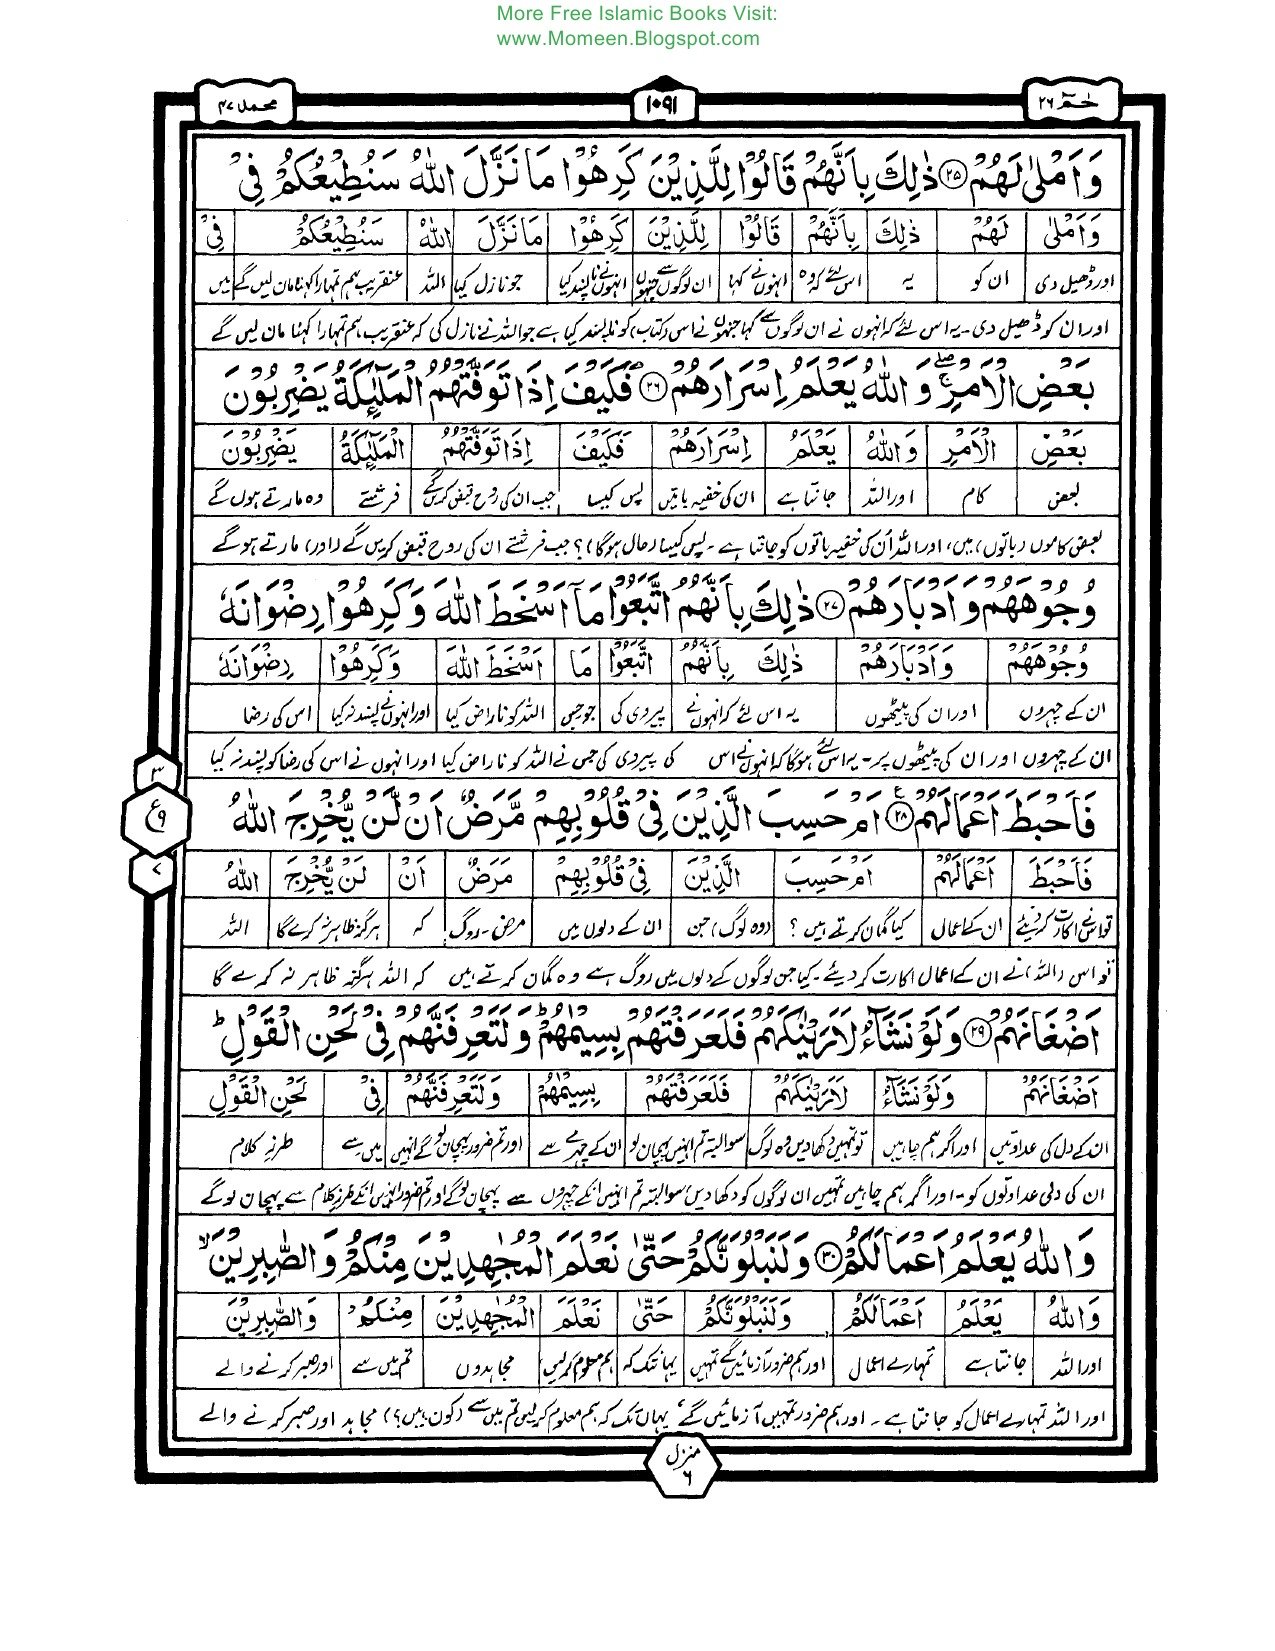 More Free Islamic Books Visit:
www.Momeen.Blogspot.com
حٰمٓ ٢٦
١٠٩١
محمد ٤٧
وَاَمْلٰى لَهُمْ ۝٢٥ ذٰلِكَ بِاَنَّهُمْ قَالُوْا لِلَّذِيْنَ كَرِهُوْا مَا نَزَّلَ اللّٰهُ سَنُطِيْعُكُمْ فِيْ
وَاَمْلٰى لَهُمْ ذٰلِكَ بِاَنَّهُمْ قَالُوْا لِلَّذِيْنَ كَرِهُوْا مَا نَزَّلَ اللّٰهُ سَنُطِيْعُكُمْ فِيْ
اور ڈھیل دی ان کو یہ اس لئے کہ وہ انہوں نے کہا ان لوگوں سے جنہوں انہوں نے ناپسند کیا جو نازل کیا اللہ عنقریب ہم تمہارا کہنا مان لیں گے میں
اور ان کو ڈھیل دی۔ یہ اس لئے کہ انہوں نے ان لوگوں سے کہا جنہوں نے اس (کتاب) کو ناپسند کیا ہے جو اللہ نے نازل کی کہ عنقریب ہم تمہارا کہنا مان لیں گے
بَعْضِ الْاَمْرِ ۚ وَاللّٰهُ يَعْلَمُ اِسْرَارَهُمْ ۝٢٦ فَكَيْفَ اِذَا تَوَفَّتْهُمُ الْمَلٰٓئِكَةُ يَضْرِبُوْنَ
بَعْضِ الْاَمْرِ وَاللّٰهُ يَعْلَمُ اِسْرَارَهُمْ فَكَيْفَ اِذَا تَوَفَّتْهُمْ الْمَلٰٓئِكَةُ يَضْرِبُوْنَ
بعض کام اور اللہ جانتا ہے ان کی خفیہ باتیں پس کیسا جب ان کی روح قبض کریں گے فرشتے وہ مارتے ہوں گے
بعض کاموں (باتوں) میں، اور اللہ اُن کی خفیہ باتوں کو جانتا ہے۔ پس کیسا (حال ہوگا)؟ جب فرشتے ان کی روح قبض کریں گے (اور) مارتے ہو گے
وُجُوْهَهُمْ وَاَدْبَارَهُمْ ۝٢٧ ذٰلِكَ بِاَنَّهُمُ اتَّبَعُوْا مَآ اَسْخَطَ اللّٰهَ وَكَرِهُوْا رِضْوَانَهٗ
وُجُوْهَهُمْ وَاَدْبَارَهُمْ ذٰلِكَ بِاَنَّهُمُ اتَّبَعُوْا مَا اَسْخَطَ اللّٰهَ وَكَرِهُوْا رِضْوَانَهٗ
ان کے چہروں اور ان کی پیٹھوں یہ اس لئے کہ انہوں نے پیروی کی جو جس اللہ کو ناراض کیا اور انہوں نے پسند نہ کیا اس کی رضا
ان کے چہروں اور ان کی پیٹھوں پر۔ یہ اس لئے ہوگا کہ انہوں نے اس کی پیروی کی جس نے اللہ کو ناراض کیا اور انہوں نے اس کی رضا کو پسند نہ کیا
٣
ع
٩
٧
فَاَحْبَطَ اَعْمَالَهُمْ ۝٢٨ اَمْ حَسِبَ الَّذِيْنَ فِيْ قُلُوْبِهِمْ مَّرَضٌ اَنْ لَّنْ يُّخْرِجَ اللّٰهُ
فَاَحْبَطَ اَعْمَالَهُمْ اَمْ حَسِبَ الَّذِيْنَ فِيْ قُلُوْبِهِمْ مَرَضٌ اَنْ لَنْ يُّخْرِجَ اللّٰهُ
تو اس نے اکارت کر دیئے ان کے اعمال کیا گمان کرتے ہیں؟ (وہ لوگ) جن ان کے دلوں میں مرض۔روگ کہ ہرگز ظاہر نہ کرے گا اللہ
تو اس (اللہ) نے ان کے اعمال اکارت کر دیئے۔ کیا جن لوگوں کے دلوں میں روگ ہے وہ گمان کرتے ہیں کہ اللہ ہرگز ظاہر نہ کرے گا
اَضْغَانَهُمْ ۝٢٩ وَلَوْ نَشَآءُ لَاَرَيْنٰكَهُمْ فَلَعَرَفْتَهُمْ بِسِيْمٰهُمْ ؕ وَلَتَعْرِفَنَّهُمْ فِيْ لَحْنِ الْقَوْلِ ؕ
اَضْغَانَهُمْ وَلَوْ نَشَآءُ لَاَرَيْنٰكَهُمْ فَلَعَرَفْتَهُمْ بِسِيْمٰهُمْ وَلَتَعْرِفَنَّهُمْ فِيْ لَحْنِ الْقَوْلِ
ان کے دل کی عداوتیں اور اگر ہم چاہیں تو تمہیں دکھا دیں وہ لوگ سو البتہ تم انہیں پہچان لو ان کے چہرے سے اور تم ضرور پہچان لو گے انہیں میں سے طرزِ کلام
ان کی دلی عداوتوں کو۔ اور اگر ہم چاہیں تمہیں ان لوگوں کو دکھا دیں سو البتہ تم انہیں انکے چہروں سے پہچان لو گے اور تم ضرور انہیں انکے طرزِ کلام سے پہچان لو گے
وَاللّٰهُ يَعْلَمُ اَعْمَالَكُمْ ۝٣٠ وَلَنَبْلُوَنَّكُمْ حَتّٰى نَعْلَمَ الْمُجٰهِدِيْنَ مِنْكُمْ وَالصّٰبِرِيْنَ ۙ
وَاللّٰهُ يَعْلَمُ اَعْمَالَكُمْ وَلَنَبْلُوَنَّكُمْ حَتّٰى نَعْلَمَ الْمُجٰهِدِيْنَ مِنْكُمْ وَالصّٰبِرِيْنَ
اور اللہ جانتا ہے تمہارے اعمال اور ہم ضرور آزمائیں گے تمہیں یہانتک کہ ہم معلوم کر لیں مجاہدوں تم میں سے اور صبر کرنے والے
اور اللہ تمہارے اعمال کو جانتا ہے۔ اور ہم ضرور تمہیں آزمائیں گے یہاں تک کہ ہم معلوم کر لیں تم میں سے (کون ہیں؟) مجاہد اور صبر کرنے والے
منزل
٦